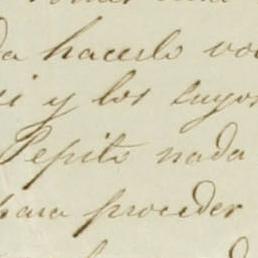 da hacerlo vo
si y los suyos
Pepito nada
para proceder